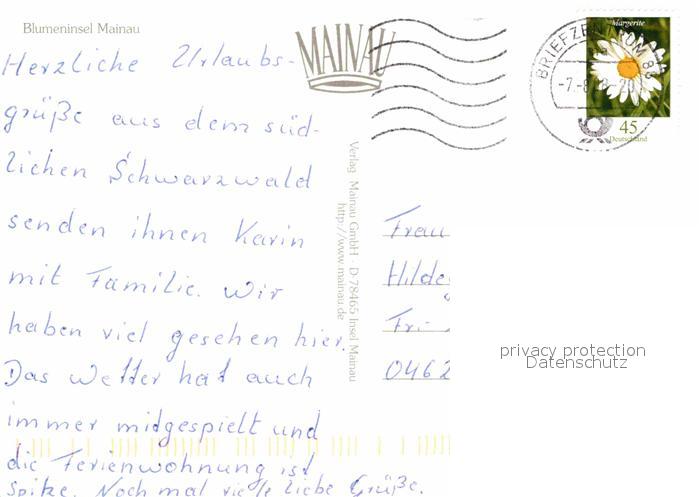 Blumeninsel Mainau
MAINAU
Herzliche Urlaubs-
grüße aus dem süd-
lichen Schwarzwald
senden ihnen Karin
mit Familie. Wir
haben viel gesehen hier.
Das Wetter hat auch
immer mitgespielt und
die Ferienwohnung ist
Spitze. Noch mal viele liebe Grüße.
Verlag Mainau GmbH · D-78465 Insel Mainau
http://www.mainau.de
BRIEFZENTRUM 88
Margerite
45
Deutschland
Frau
Hilde
Fri
0462
privacy protection
Datenschutz